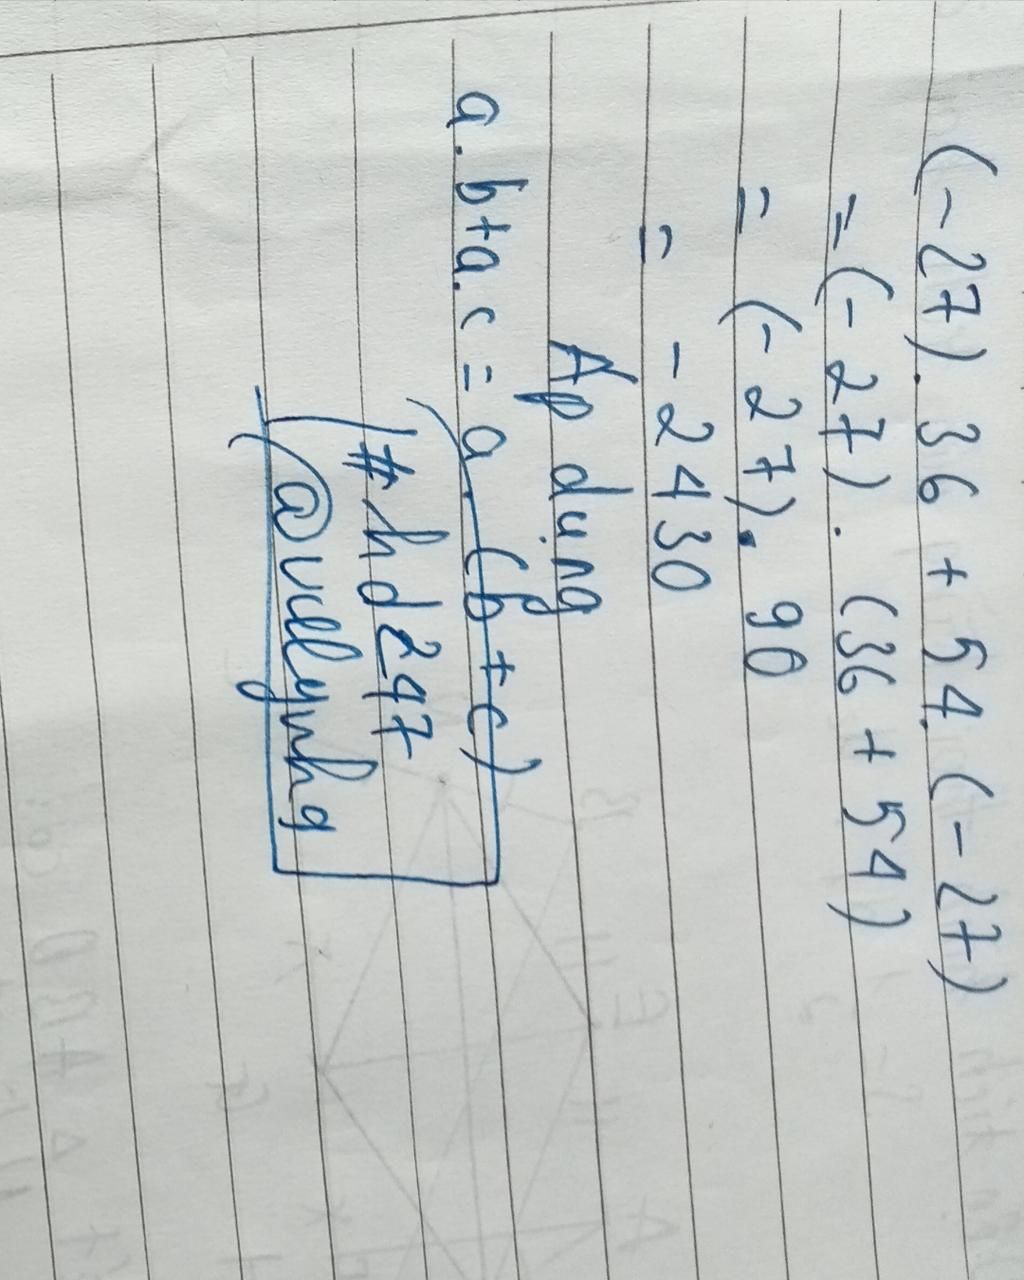 (-27). 36 + 54. (-27)
= (-27). (36 + 54)
= (-27). 90
= -2430
Áp dụng
a.b+a.c = a.(b+c)
#hd247
@vellynhg